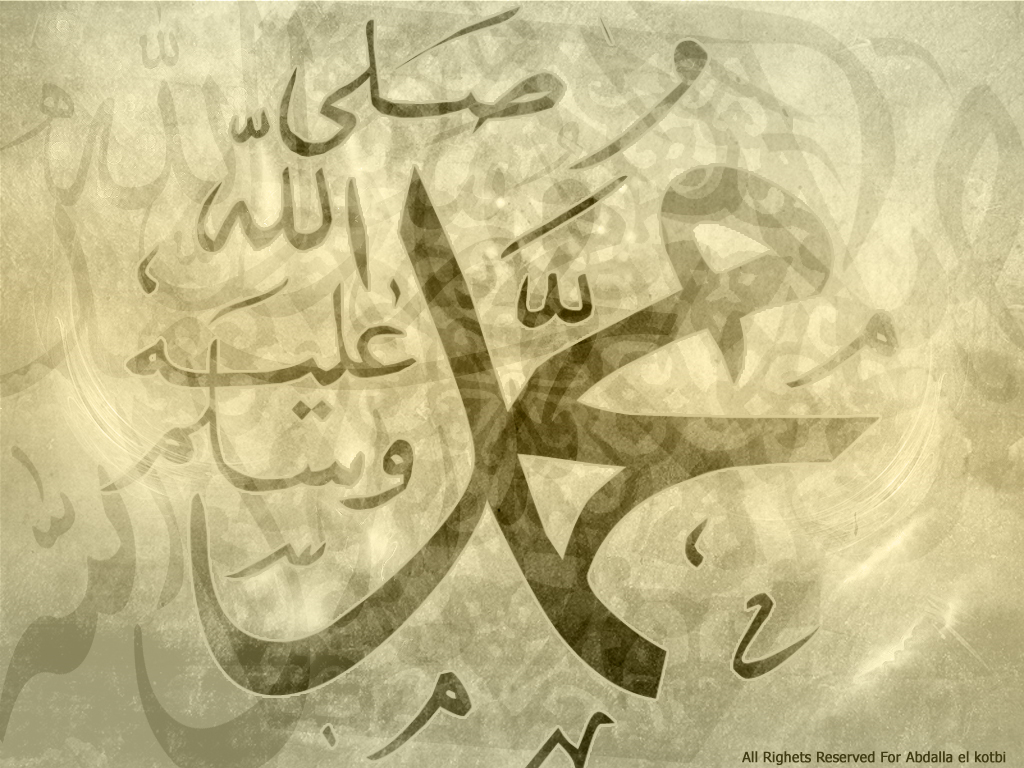 محمد
صلى
الله
عليه
وسلم
All Righets Reserved For Abdalla el kotbi